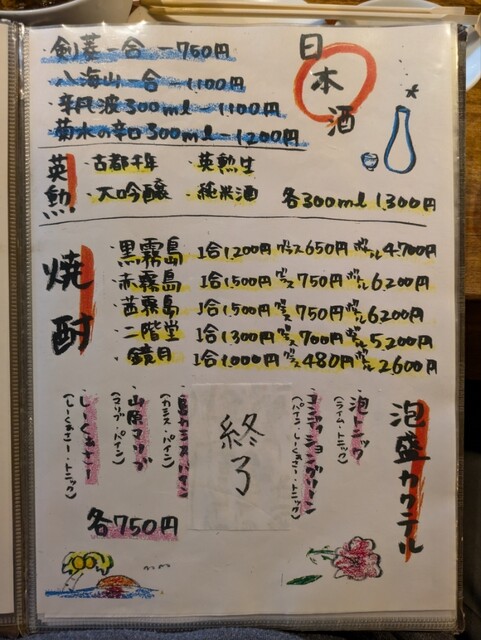 日本酒
・剣菱一合ー750円
・八海山一合ー1100円
・辛丹波300mlー1100円
・菊水の辛口300ml 1200円
英勲
・古都千年 ・英勲生
・大吟醸 ・純米酒 各300ml 1,300円
焼酎
・黒霧島 1合1,200円グラス650円ボトル4,700円
・赤霧島 1合1,500円グラス750円ボトル6,200円
・茜霧島 1合1,500円グラス750円ボトル6,200円
・二階堂 1合1,300円グラス700円ボトル5,200円
・鏡月 1合1,000円グラス480円ボトル2,600円
泡盛カクテル
・泡トニック
(ライム・トニック)
(パイン・しーくゎさー・トニック)
終了
(カシス・パイン)
・山原マリブ
(マリブ・パイン)
・しーくゎさー
(しーくゎさー・トニック)
各750円